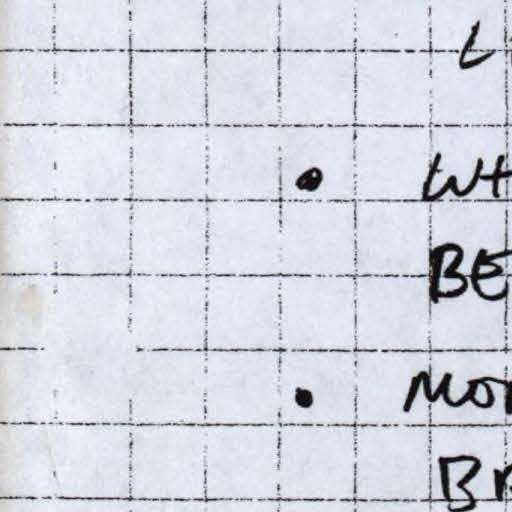 L
• WH
BE
• MOR
BR